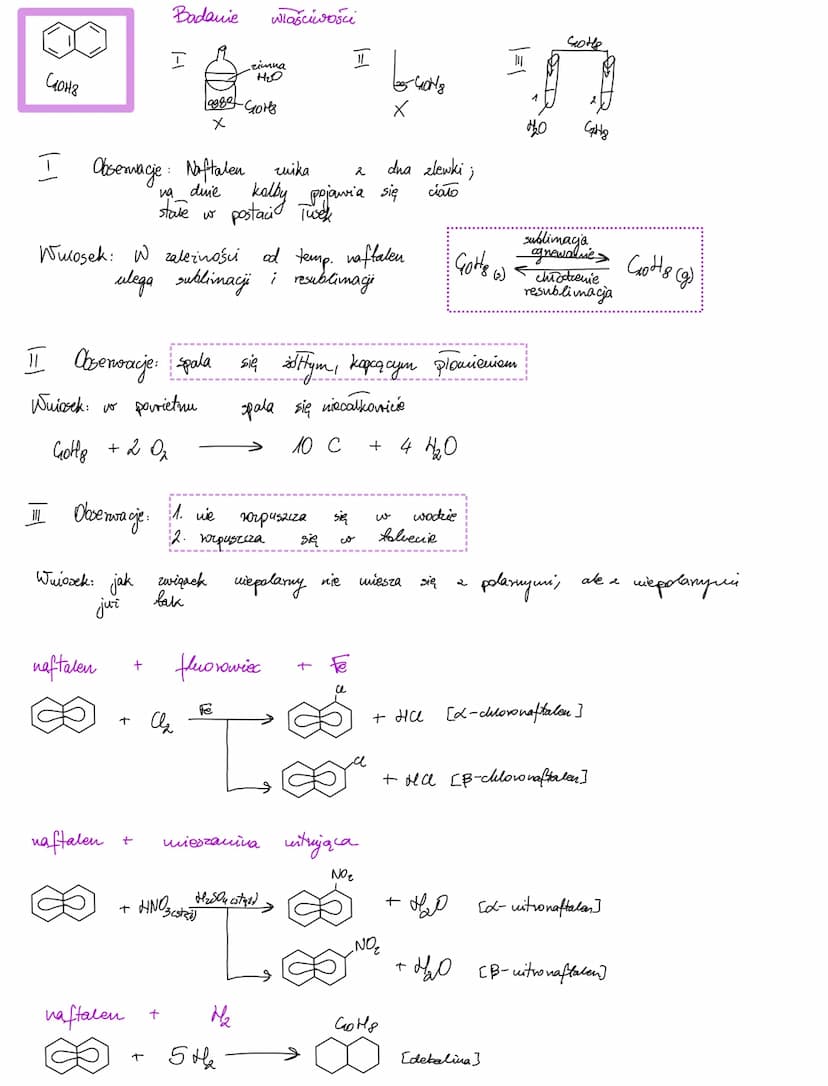 Badanie właściwości
C10H8
I
zimna
H2O
C10H8
X
II
C10H8
X
III
C10H8
1
2
H2O
I Obserwacje: Naftalen znika z dna zlewki;
na dnie kolby pojawia się ciało
stałe w postaci łusek
Wniosek: W zależności od temp. naftalen
ulega sublimacji i resublimacji
sublimacja
ogrzewanie
C10H8 (s) C10H8 (g)
chłodzenie
resublimacja
II Obserwacje: spala się żółtym, kopcącym płomieniem
Wniosek: w powietrzu spala się niecałkowicie
C10H8 + 2 O2 → 10 C + 4 H2O
III Obserwacje: 1. nie rozpuszcza się w wodzie
2. rozpuszcza się w toluenie
Wniosek: jak związek niepolarny nie miesza się z polarnymi, ale z niepolarnymi
już tak
naftalen + fluorowiec + Fe
Cl
+ Cl2 Fe → + HCl [α-chloronaftalen]
Cl
+ HCl [β-chloronaftalen]
naftalen + mieszanina nitrująca
NO2
+ HNO3(stęż) H2SO4 (stęż) → + H2O [α-nitronaftalen]
NO2
+ H2O [β-nitronaftalen]
naftalen + H2
C10H8
+ 5 H2 → [dekalina]